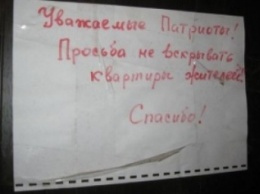 Уважаемые Патриоты!
Просьба не вскрывать
квартиры жителей.
Спасибо!